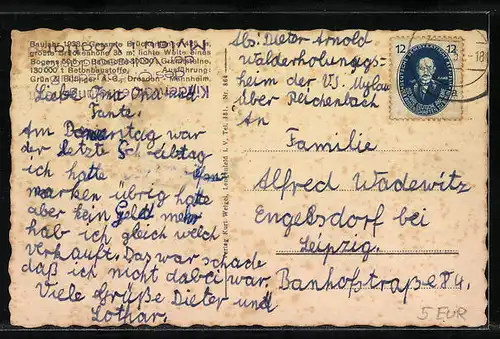 Baujahr 1938. Gesamte Brückenlänge
größte Brückenhöhe 35 m, lichte Weite eines
Bogens
130 000 t Betonbaustoffe. Ausführung:
Grün & Bilfinger A.-G., Dresden - Mannheim.
Liebe Oma Opa und
Tante.
Am war
der letzte Schultag
ich hatte
marken übrig hatte
aber kein Geld mehr
hab ich gleich welch
verkauft. Das war schade
daß ich nicht dabei war.
Viele Grüße Dieter und
Lothar.
Verlag Kurt Weigel, Lengenfeld i. V., Tel. 381, Nr. 864
Abs: Dieter Arnold
Walderholungs-
heim der VS. Mylau
über Reichenbach
12 12
An
Familie
Alfred Wadewitz
Engelsdorf bei
Leipzig.
Banhofstraße 84.
5 EUR